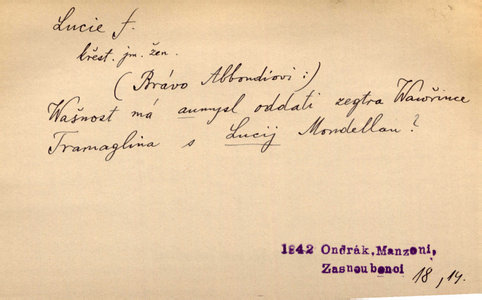 Lucie f.
křest. jm. žen.
(Brávo Abbondiovi:)
Wašnost má aumysl oddati zegtra Wawřince
Tramaglina s Lucij Mondellau?
1842 Ondrák, Manzoni,
Zasnoubenci
18, 14.